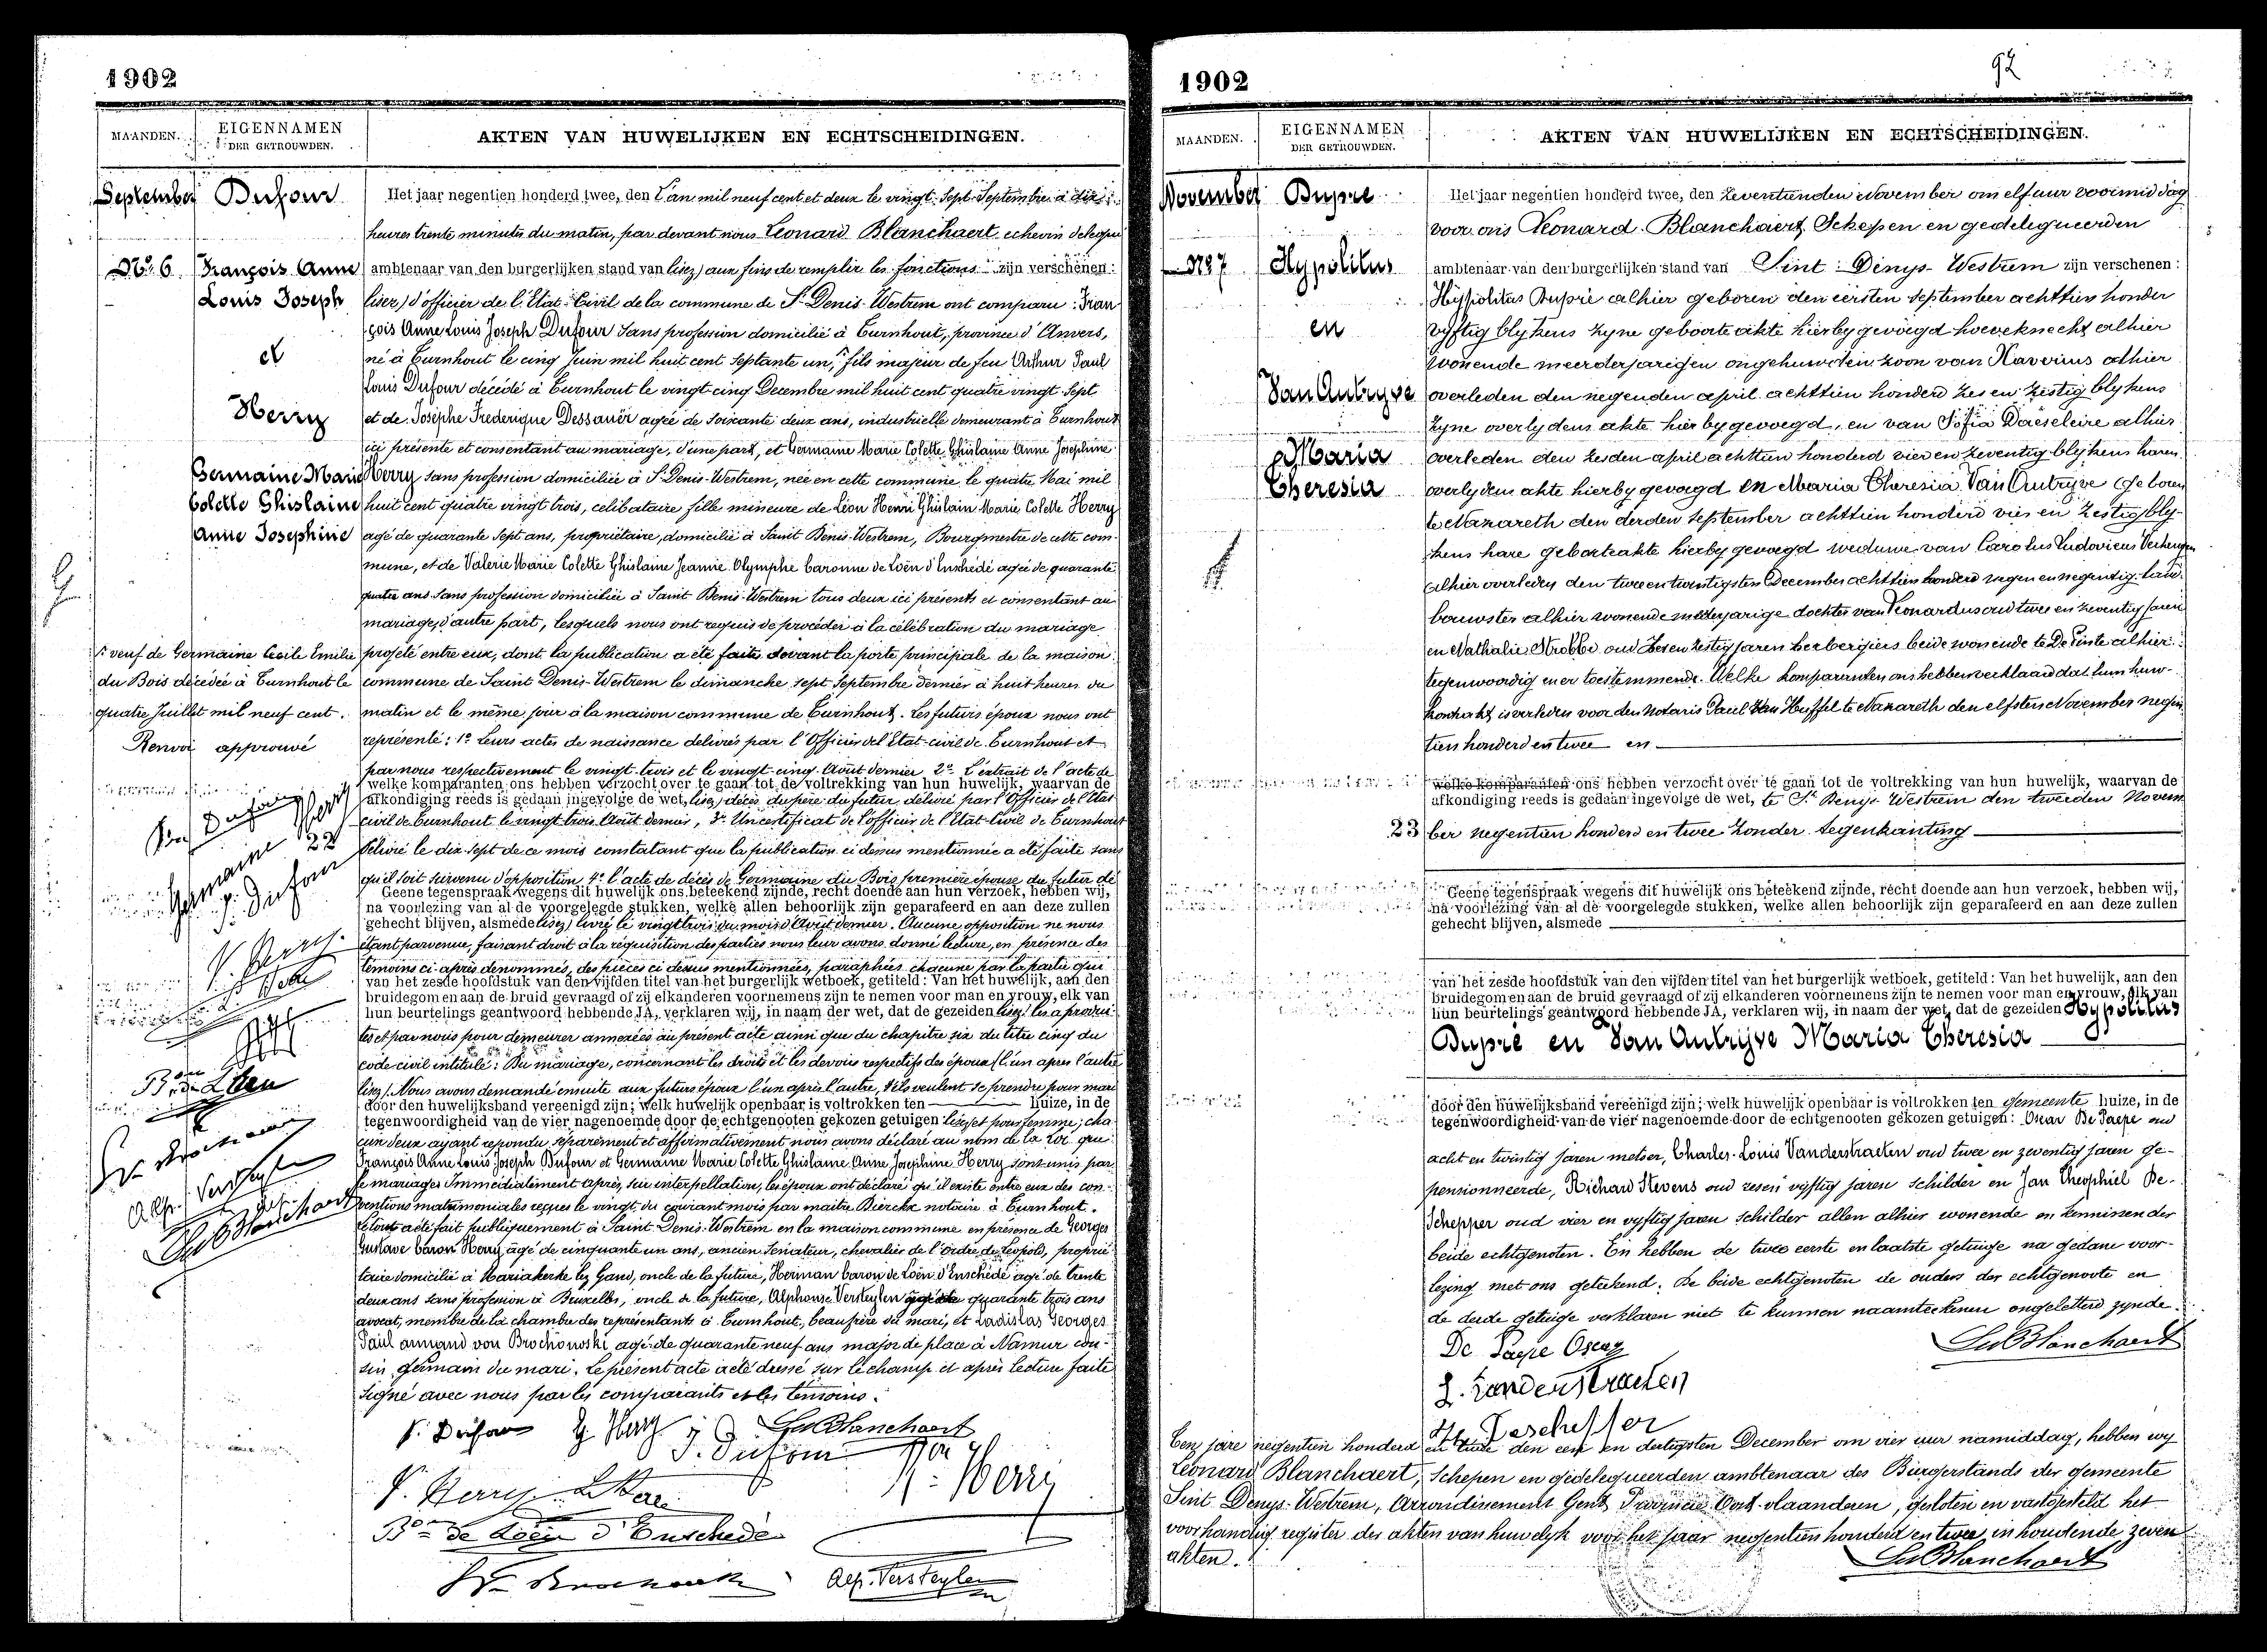 1902
MAANDEN.
EIGENNAMEN
DER GETROUWDEN.
AKTEN VAN HUWELIJKEN EN ECHTSCHEIDINGEN.
September
Dufour
Het jaar negentien honderd twee, den L'an mil neuf cent et deux le vingt-sept Septembre à dix
heures trente minutes du matin, par devant nous Leonard Blanchaert echevin delegué
No. 6
François Anne
ambtenaar van den burgerlijken stand van lisez) aux fins de remplir les fonctions zijn verschenen:
Louis Joseph
lisez) d'officier de l'Etat-Civil de la commune de St Denis-Westrem ont comparu: Fran
çois Anne Louis Joseph Dufour sans profession domicilié à Turnhout, province d'Anvers,
et
né à Turnhout le cinq Juin mil huit cent septante un, fils majeur de feu Arthur Paul
Louis Dufour décédé à Turnhout le vingt-cinq Decembre mil huit cent quatre vingt sept
Herry
et de Josèphe Frederique Dessauër agée de soixante deux ans, industrielle demeurant à Turnhout
ici présente et consentant au mariage, d'une part, et Germaine Marie Colette Ghislaine Anne Josephine
Germaine Marie
Herry sans profession domiciliée à St Denis-Westrem, née en cette commune le quatre Mai mil
Colette Ghislaine
huit cent quatre vingt trois, celibataire fille mineure de Léon Henri Ghislain Marie Colette Herry
Anne Josephine
agé de quarante sept ans, propriétaire, domicilié à Saint Denis-Westrem, Bourgmestre de cette com-
mune, et de Valerie Marie Colette Ghislaine Jeannie Olymphe baronne de Loën d'Enschédé agée de quarante
quatre ans sans profession domiciliée à Saint Denis-Westrem tous deux ici présents et consentant au
mariage, d'autre part, lesquels nous ont requis de procéder à la célébration du mariage
veuf de Germaine Cecile Emilie
projeté entre eux, dont la publication a été faite devant la porte principale de la maison
du Bois décédée à Turnhout le
commune de Saint Denis-Westrem le dimanche sept Septembre dernier à huit heures du
quatre Juillet mil neuf cent.
matin et le même jour à la maison commune de Turnhout. Les futurs époux nous ont
Renvoi approuvé
représenté: 1o Leurs actes de naissance delivrés par l'Officier de l'Etat-civil de Turnhout et
par nous respectivement le vingt-trois et le vingt-cinq Août dernier 2o L'extrait de l'acte de
welke komparanten ons hebben verzocht over te gaan tot de voltrekking van hun huwelijk, waarvan de
afkondiging reeds is gedaan ingevolge de wet, lisez) décès du père du futur délivré par l'Officier de l'Etat
civil de Turnhout le vingt trois Août dernier, 3o Un certificat de l'officier de l'Etat-Civil de Turnhout
22
délivré le dix-sept de ce mois constatant que la publication ci dessus mentionnée a été faite sans
qu'il soit survenu d'opposition 4o l'acte de décès de Germaine du Bois première épouse du futur dé
Geene tegenspraak wegens dit huwelijk ons beteekend zijnde, recht doende aan hun verzoek, hebben wij,
na voorlezing van al de voorgelegde stukken, welke allen behoorlijk zijn geparafeerd en aan deze zullen
gehecht blijven, alsmede lisez) livré le vingt trois du mois d'Août dernier. Aucune opposition ne nous
étant parvenue, faisant droit à la réquisition des parties nous leur avons donné lecture, en présence des
témoins ci-après denommés, des pièces ci dessus mentionnées, paraphées chacune par la partie qui
van het zesde hoofdstuk van den vijfden titel van het burgerlijk wetboek, getiteld: Van het huwelijk, aan den
bruidegom en aan de bruid gevraagd of zij elkanderen voornemens zijn te nemen voor man en vrouw, elk van
hun beurtelings geantwoord hebbende JA, verklaren wij, in naam der wet, dat de gezeiden lisez) les a produi
tes et par nous pour demeurer annexées au présent acte ainsi que du chapitre six du titre cinq du
code civil intitulé: Du mariage, concernant les droits et les devoirs respectifs des époux l'un après l'autre
lisez) Nous avons demandé ensuite aux futurs époux l'un après l'autre, s'ils veulent se prendre pour mari
door den huwelijksband vereenigd zijn; welk huwelijk openbaar is voltrokken ten huize, in de
tegenwoordigheid van de vier nagenoemde door de echtgenooten gekozen getuigen lisez) et pour femme; cha
cun d'eux ayant repondu séparément et affirmativement nous avons déclaré au nom de la loi que
François Anne Louis Joseph Dufour et Germaine Marie Colette Ghislaine Anne Josephine Herry sont unis par
le mariage. Immédiatement après, sur interpellation, les époux ont déclaré qu'il existe entre eux des con-
ventions matrimoniales reçues le vingt du courant mois par maître Dierckx notaire à Turnhout.
Le tout a été fait publiquement à Saint Denis-Westrem en la maison commune en présence de Georges
Gustave baron Herry agé de cinquante un ans, ancien Senateur, chevalier de l'Ordre de Léopold, proprié
taire domicilié à Mariakerke lez Gand, oncle de la future, Herman baron de Loën d'Enschédé agé de trente
deux ans sans profession à Bruxelles, oncle de la future, Alphonse Versteylen agé de quarante trois ans
avocat, membre de la chambre des représentants à Turnhout, beau père du mari, et Ladislas Georges
Paul armand von Brochowski agé de quarante neuf ans major de place à Namur cou-
sin germain du mari. Le présent acte a été dressé sur le champ et après lecture faite
signé avec nous par les comparants et les temoins.
f. Dufour G Herry LeBlanchaert
J. Dufour
V. Herry Bon G. Herry
Bon de Loën d'Enschédé
Alf. Versteylen
1902
92
MAANDEN.
EIGENNAMEN
DER GETROUWDEN.
AKTEN VAN HUWELIJKEN EN ECHTSCHEIDINGEN.
November
Dupré
Het jaar negentien honderd twee, den zeventienden November om elf uur voormiddag
voor ons Leonard Blanchaert Schepen en gedelegueerden
No 7
Hypolitus
ambtenaar van den burgerlijken stand van Sint-Denys-Westrem zijn verschenen:
Hyppolitus Dupré alhier geboren den eersten September achttien honder
en
vyftig blykens zyne geboorte akte hierby gevoegd hoveknecht alhier
wonende meerderjarigen ongehuwden zoon van Xaverius alhier
Van Autryve
overleden den negenden april achttien honderd zes en zestig blykens
zyne overlydens akte hier by gevoegd, en van Sofia Daeseleire alhier
Maria
overleden den zesden april achttien honderd vier en zeventig blykens haren
Theresia
overlydens akte hierby gevoegd en Maria Theresia Van Autryve geboren
te Nazareth den derden September achttien honderd vier en zestig bly-
kens hare geboorteakte hierby gevoegd weduwe van Carolus Ludovicus Verhaegen
alhier overleden den twee en twintigsten December achttien honderd negen en negentig land-
bouwster alhier wonende meerderjarige dochter van Leonardus oud twee en zeventig jaren
en Nathalie Strobbe oud zes en zestig jaren herbergiers beide wonende te De Pinte alhier
tegenwoordig en er toestemmende. Welke komparanten ons hebben verklaard dat hun huw-
kontrakt is verleden voor den Notaris Paul Van Huffel te Nazareth den elfsten November negen
tien honderd en twee en
welke komparanten ons hebben verzocht over te gaan tot de voltrekking van hun huwelijk, waarvan de
afkondiging reeds is gedaan ingevolge de wet, te St Denys-Westrem den tweeden Novem
23 ber negentien honderd en twee zonder tegenkanting
Geene tegenspraak wegens dit huwelijk ons beteekend zijnde, recht doende aan hun verzoek, hebben wij,
na voorlezing van al de voorgelegde stukken, welke allen behoorlijk zijn geparafeerd en aan deze zullen
gehecht blijven, alsmede
van het zesde hoofdstuk van den vijfden titel van het burgerlijk wetboek, getiteld: Van het huwelijk, aan den
bruidegom en aan de bruid gevraagd of zij elkanderen voornemens zijn te nemen voor man en vrouw, elk van
hun beurtelings geantwoord hebbende JA, verklaren wij, in naam der wet, dat de gezeiden Hypolitus
Dupré en Van Autryve Maria Theresia
door den huwelijksband vereenigd zijn; welk huwelijk openbaar is voltrokken ten gemeente huize, in de
tegenwoordigheid van de vier nagenoemde door de echtgenooten gekozen getuigen: Oscar De Paepe oud
acht en twintig jaren metser, Charles-Louis Vanderstraeten oud twee en zeventig jaren ge-
pensionneerde, Richard Stevens oud zes en vyftig jaren schilder en Jan Theophiel De-
Schepper oud vier en vyftig jaren schilder allen alhier wonende en kennissen der
beide echtgenoten. En hebben de twee eerste en laatste getuige na gedane voor-
lezing met ons geteekend. De beide echtgenoten de ouders der echtgenoote en
de derde getuige verklaren niet te kunnen naamteekenen ongeletterd zynde.
De Paepe Oscar
LeBlanchaert
L. Vanderstraeten
Deschepper
Ten jare negentien honderd en twee den een en dertigsten December om vier uur namiddag, hebben wy
Leonard Blanchaert, Schepen en gedelegueerden ambtenaar des Burgerstands der gemeente
Sint Denys-Westrem, Arrondissement Gent Provincie Oost-vlaanderen, gesloten en vastgesteld het
voorhandig register des akten van huwelyk voor het jaar negentien honderd en twee, inhoudende zeven
akten.
LeBlanchaert